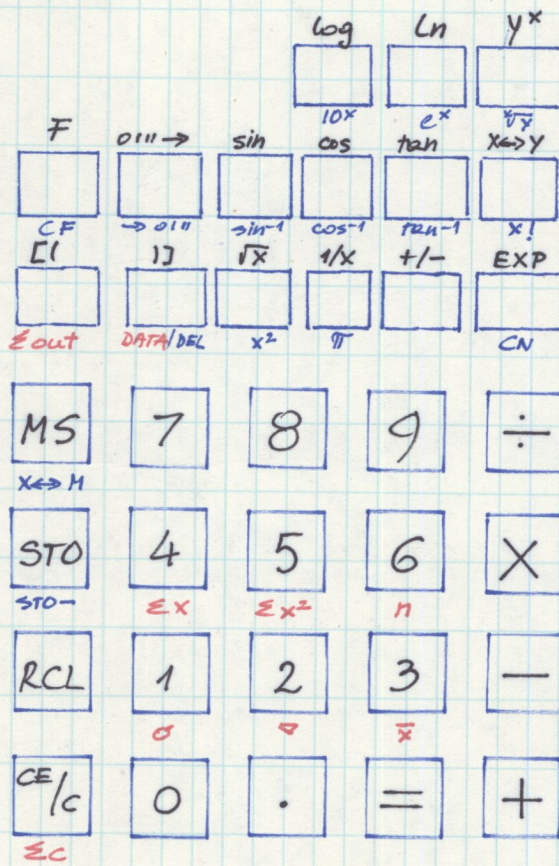 log Ln Y^x
10^x e^x ˣ√x
F 0ııı → sin cos tan X↔Y
CF → 0ııı sin⁻¹ cos⁻¹ tan⁻¹ X!
[( )] √x 1/X +/- EXP
Σout DATA/DEL x² π CN
MS 7 8 9 ÷
X↔M
STO 4 5 6 X
STO- Σx Σx² n
RCL 1 2 3 −
σ x̄
CE/C 0 . = +
ΣC